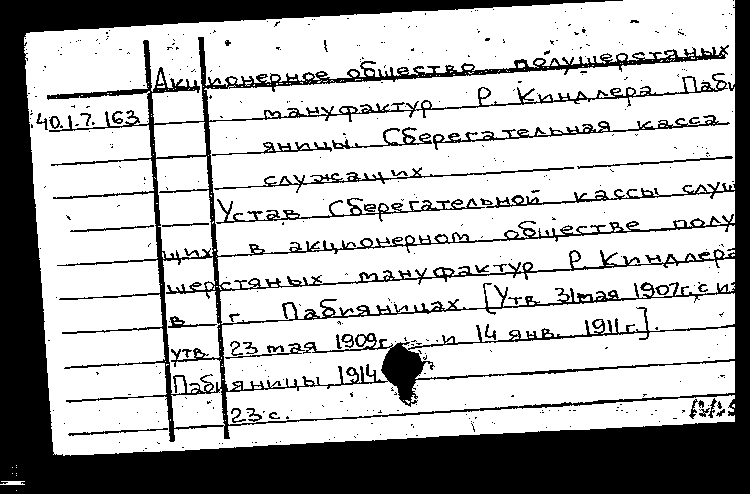 Акционерное общество полушерстяных
40.1.7.163 мануфактур Р. Киндлера Паби
яницы. Сберегательная касса
служащих.
Устав Сберегательной кассы служ
щих в акционерном обществе полу
шерстяных мануфактур Р. Киндлера
в г. Пабияницах. [Утв. 31 мая 1907г., с из
утв. 23 мая 1909г. и 14 янв. 1911г.].
Пабияницы, 1914.
23 с.